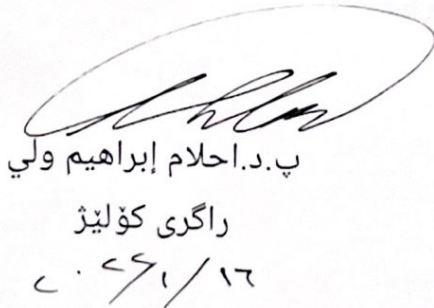 پ.د.احلام إبراهيم ولي
راگری کۆلێژ
٢٠٢٤/١/١٦